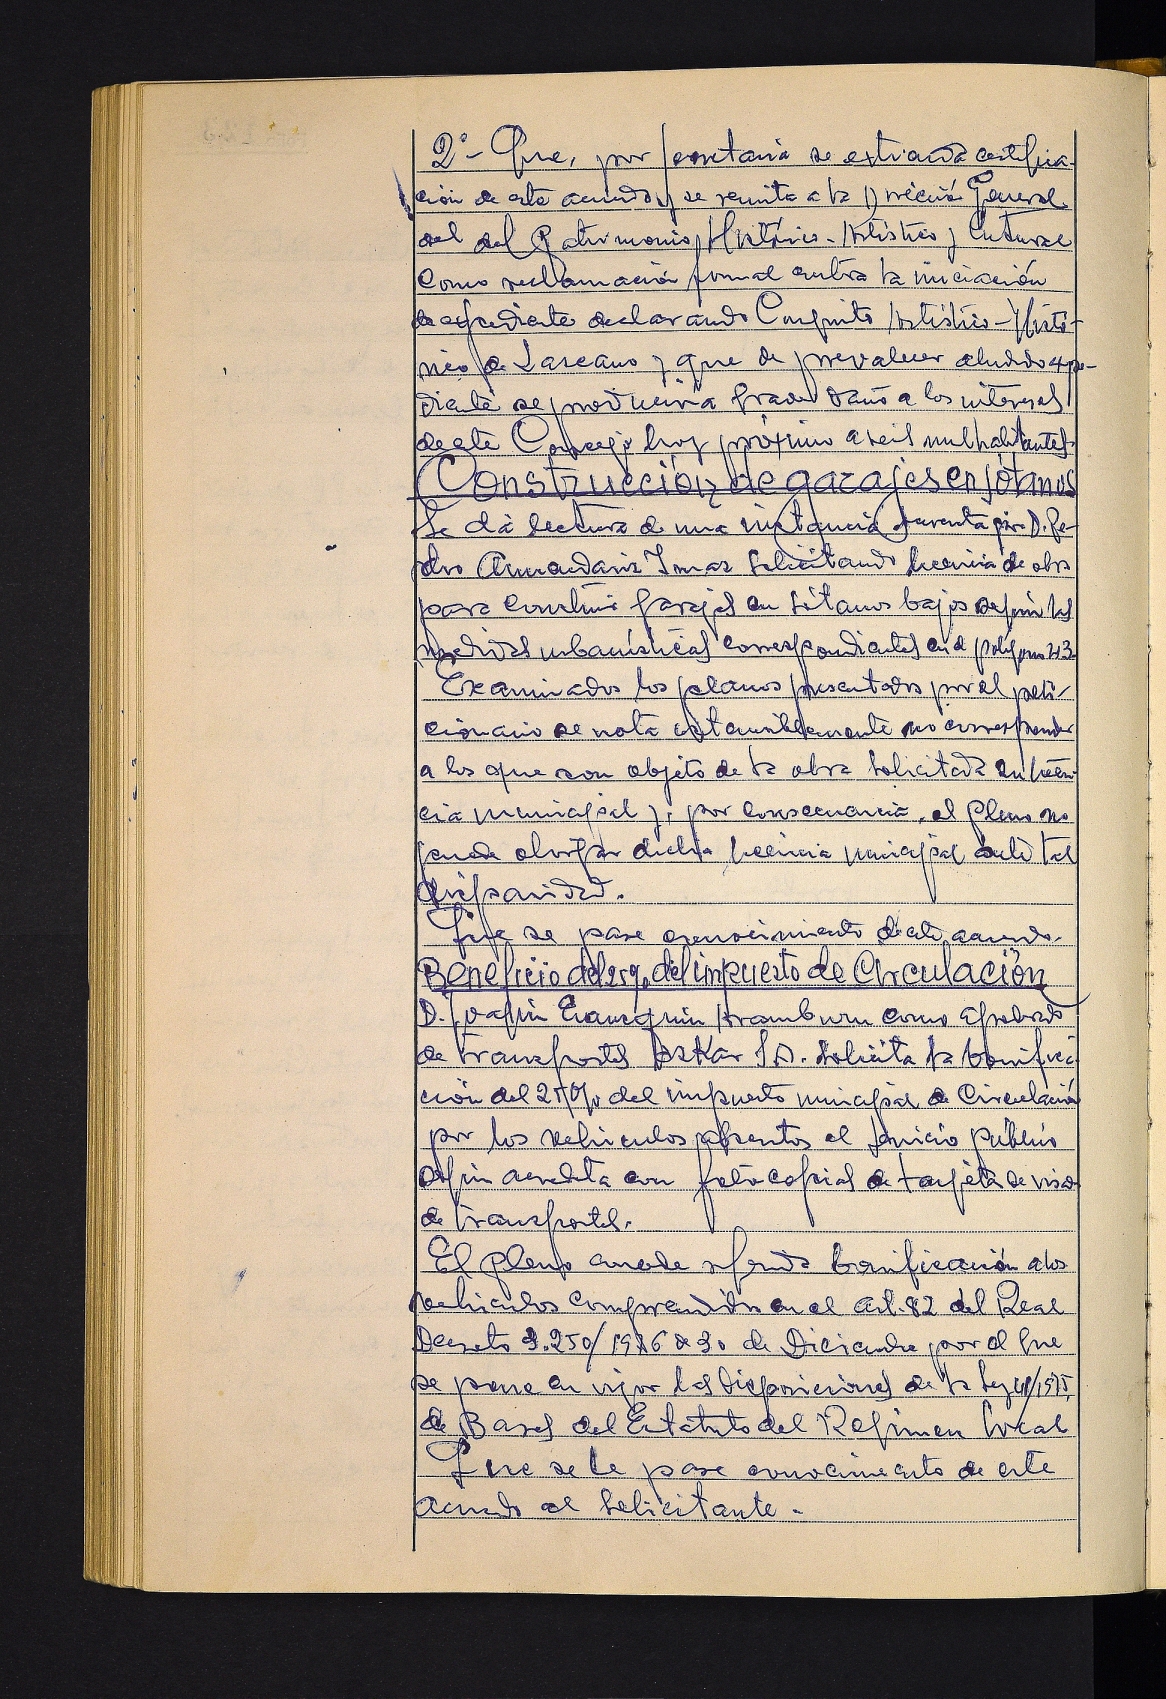 2º- Que, por Secretaria se extienda certifica-
ción de este acuerdo y se remita a la Dirección General
del del Patrimonio Histórico-Artístico y Cultural
como reclamación formal contra la iniciación
de expediente declarando Conjunto Artístico-Histó-
rico de Lazcano y que de prevalecer aludido expe-
diente se produciria grave daño a los intereses
de este Concejo hoy próximo a seis mil habitantes.
Construcción de garajes en sótanos
Se dá lectura de una instancia suscrita por D. Pe-
dro Armendariz Imaz solicitando licencia de obra
para construir garajes en sótanos bajos según las
medidas urbanísticas correspondientes en el polígono 23.
Examinados los planos presentados por el peti-
cionario se nota ostensiblemente no corresponder
a los que son objeto de la obra solicitada en licen-
cia municipal y, por consecuencia, el Pleno no
puede otorgar dicha licencia municipal ante tal
disparidad.
Que se pase conocimiento de este acuerdo.
Beneficio del 25% del impuesto de Circulación
D. Joaquin Aramburu como Apoderado
de Transportes Azkar S.A. solicita la bonifica-
ción del 25% del impuesto municipal de Circulación
por los vehiculos afectos al servicio público
según acredita con fotocopias de tarjeta de visado
de transportes.
El pleno concede referida bonificación a los
vehiculos comprendidos en el art. 82 del Real
Decreto 3.250/1976 de 30 de Diciembre por el que
se pone en vigor las disposiciones de la Ley 41/1975,
de Bases del Estatuto del Régimen Local
Que se le pase conocimiento de este
acuerdo al solicitante.-